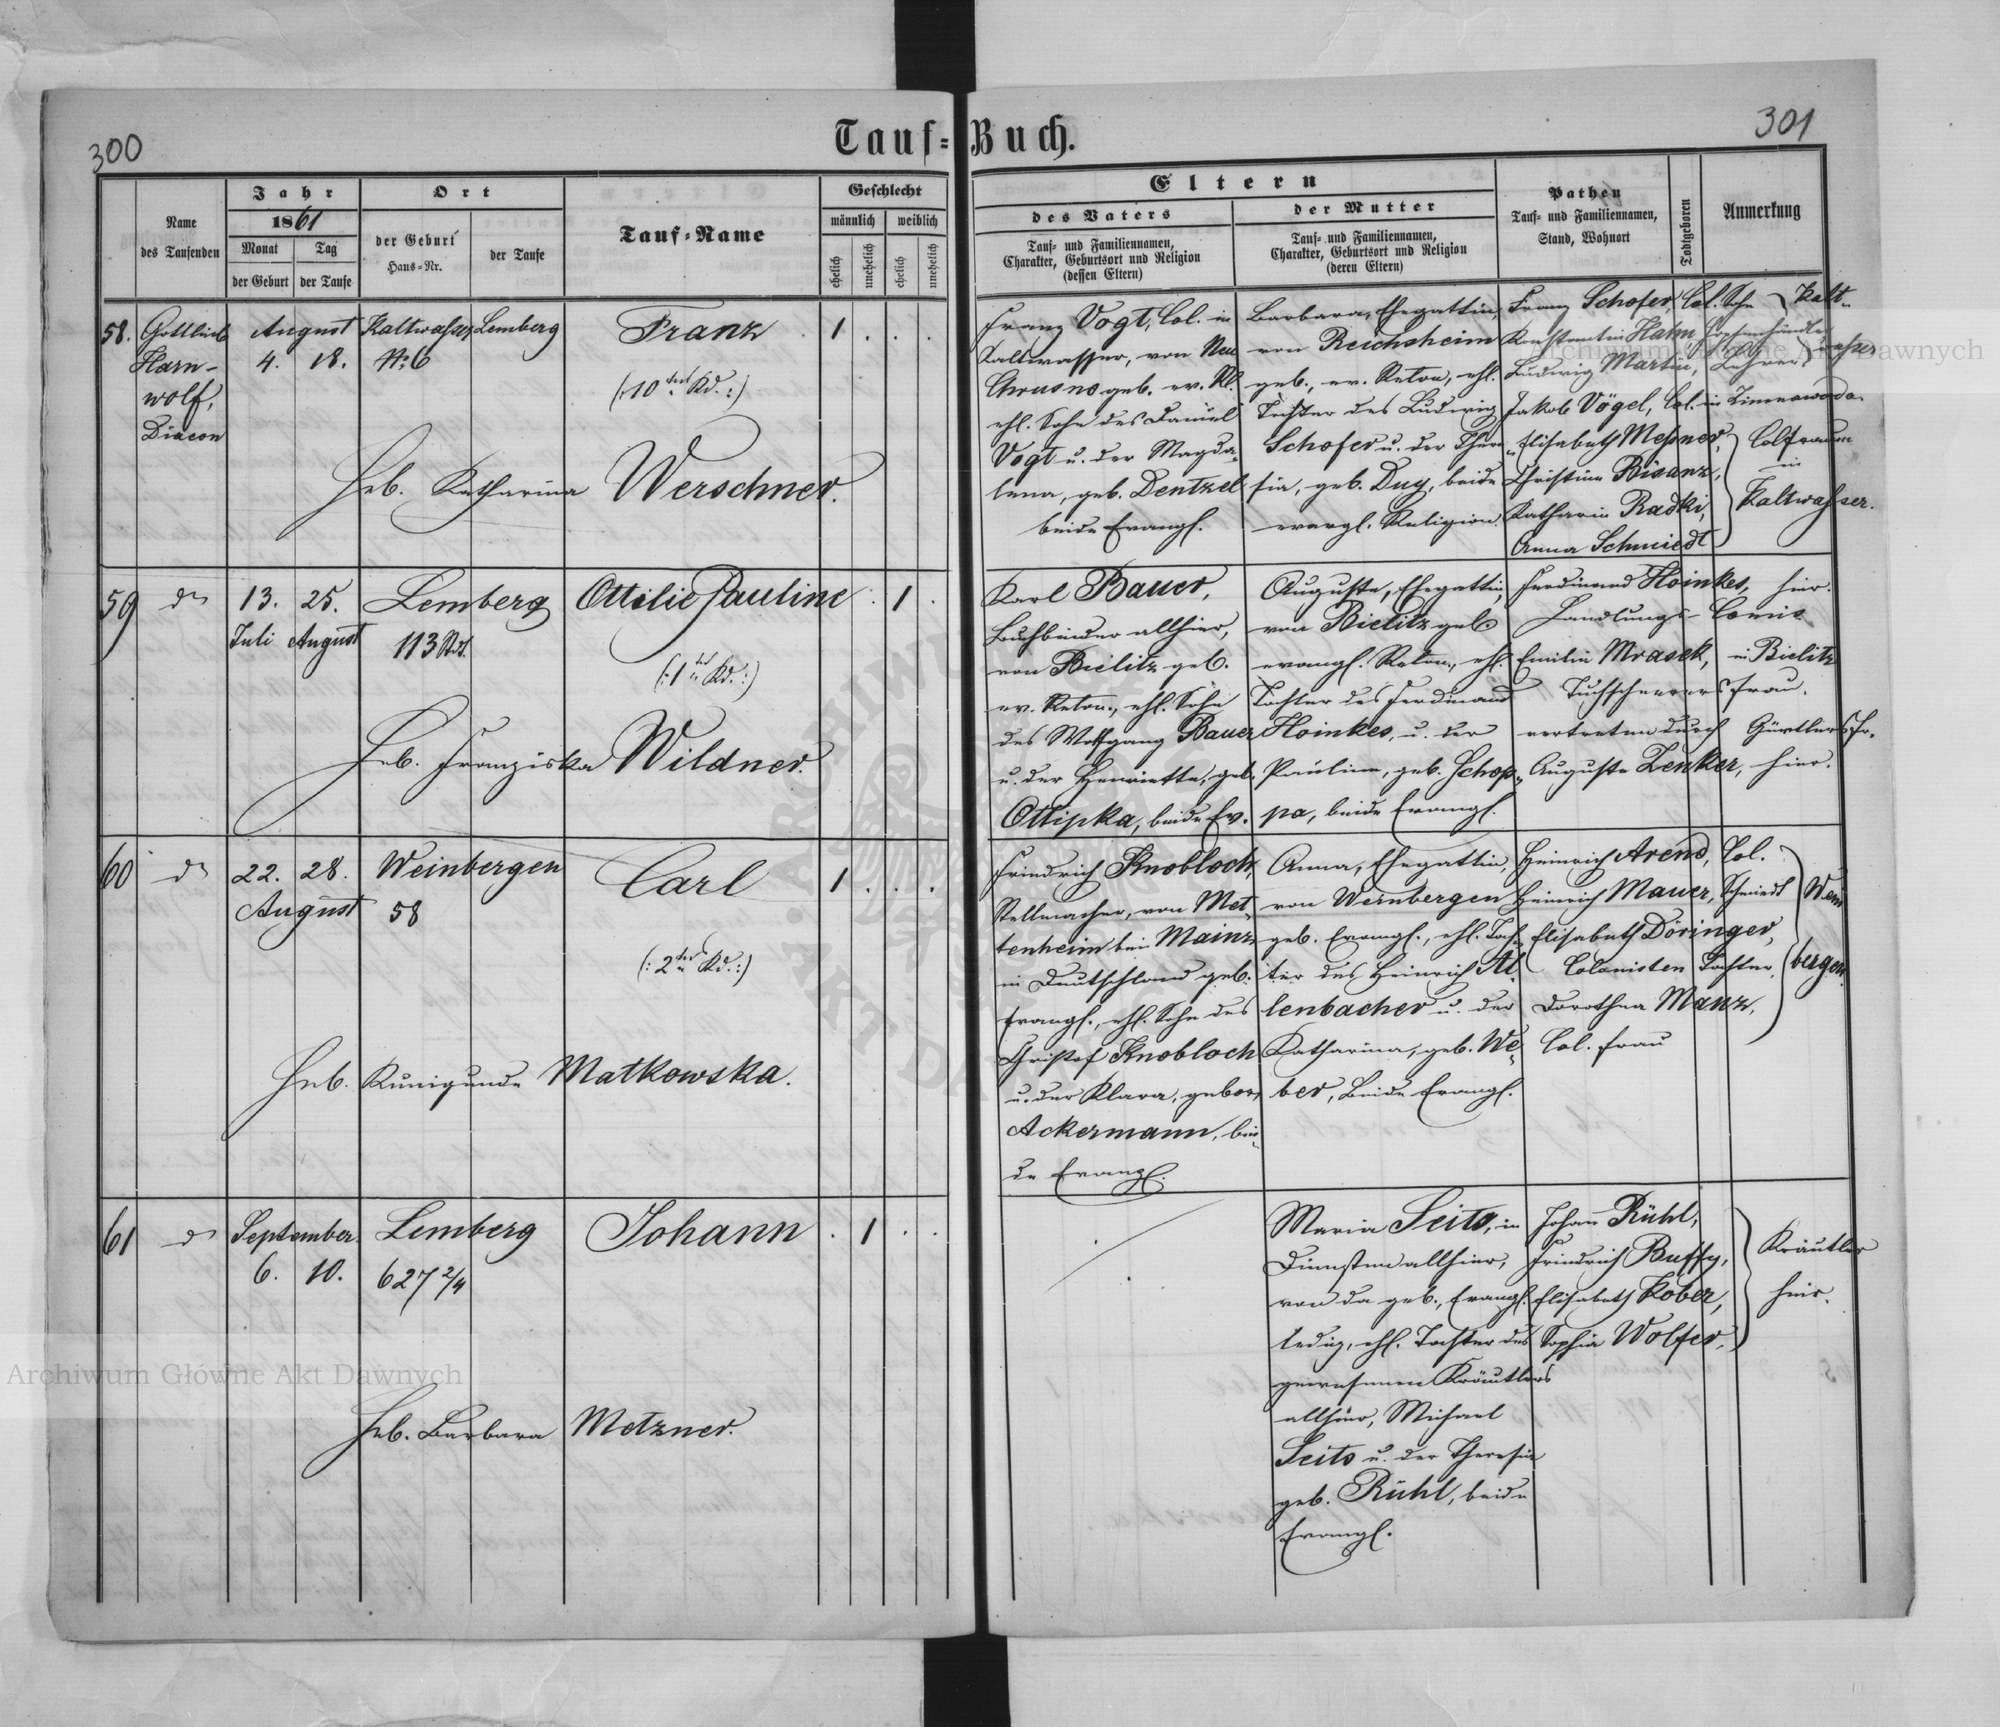 300
Tauf-Buch.
301
Name des Taufenden
Jahr
1861
Monat
Tag
der Geburt
der Taufe
Ort
der Geburt
Haus-Nr.
der Taufe
Tauf-Name
Geschlecht
männlich
weiblich
ehelich
unehelich
ehelich
unehelich
Eltern
des Vaters
Tauf- und Familiennamen,
Charakter, Geburtsort und Religion
(dessen Eltern)
der Mutter
Tauf- und Familiennamen,
Charakter, Geburtsort und Religion
(deren Eltern)
Pathen
Tauf- und Familiennamen,
Stand, Wohnort
Todtgeboren
Anmerkung
58.
Gottlieb
Harn-
wolf,
Diacon
August
4. 18.
Kaltwasser
№ 6
Lemberg
Franz
(: 10tes Kd. :)
1 . . .
Heb. Katharina Werschner.
Franz Vogt, Col. in
Kaltwasser, von Neu
Chrusno geb. ev. Rl.
ehl. Sohn des Daniel
Vogt u. der Magda-
lena, geb. Dentzel
beide Evangl.
Barbara, Ehegattin,
von Reichsheim
geb., ev. Reton, ehl.
Tochter des Ludwig
Schofer u. der There-
sia, geb. Duy, beide
evangl. Religion.
Franz Schofer, Col. Sohn
Konstantin Hahn,
Ludwig Martin, Lehrer,
Kalt-
wasser
Jakob Vögel, Col. in Zimnawoda.
Elisabeth Meßner,
Christina Bisanz,
Katharin Radki,
Anna Schmiedt
Colfrauen
in
Kaltwasser.
59
do
13. 25.
Juli August
Lemberg
113 Stdt.
Ottilie Pauline
(: 1tes Kd. :)
. 1 .
Heb. Franziska Wildner.
Karl Bauer,
Buchbinder allhier,
von Bielitz geb.
ev. Reton., ehl. Sohn
des Wolfgang Bauer
u. der Henriette, geb.
Ottipka, beide Ev.
Auguste, Ehegattin,
von Bielitz geb.
evangl. Reton., ehl.
Tochter des Ferdinand
Hoinkes, u. der
Pauline, geb. Schop-
pa, beide Evangl.
Ferdinand Hoinkes, hier.
Handlungs-Comis
Emilie Mrasek, in Bielitz
Tuchscherers frau.
vertreten durch Gürtlersfr.
Auguste Zenker, hier.
60
do
22. 28.
August
Weinbergen
58
Carl
(: 2tes Kd. :)
1 . . .
Heb. Kunigunde Matkowska.
Friedrich Knobloch,
Stellmacher, von Met-
tenheim bei Mainz
in Deutschland geb.
Evangl., ehl. Sohn des
Christof Knobloch
u. der Klara, gebor.
Ackermann, bei-
de Evangl.
Anna, Ehegattin,
von Weinbergen
geb. Evangl., ehl. Toch-
ter des Heinrich Al-
lenbacher u. der
Katharina, geb. We-
ber, beide Evangl.
Heinrich Arend, Col.
Heinrich Mauer, Schmiedt
Elisabeth Döringer,
Colonisten Tochter,
Dorothea Manz,
Col. frau
Wein
bergen
61
do
September
6. 10.
Lemberg
627 2/4
Johann
. 1 . .
Heb. Barbara Metzner.
Maria Seits, in
Diensten allhier,
von da geb., Evangl.
ledig, ehl. Tochter des
gewesenen Kräutlers
allhier, Michael
Seits u. der Theresia
geb. Rühl, beide
Evangl.
Johann Rühl,
Friedrich Buffy,
Elisabeth Kober,
Sophia Wolfer,
Kräutler
hier.
Archiwum Główne Akt Dawnych
Archiwum Główne Akt Dawnych